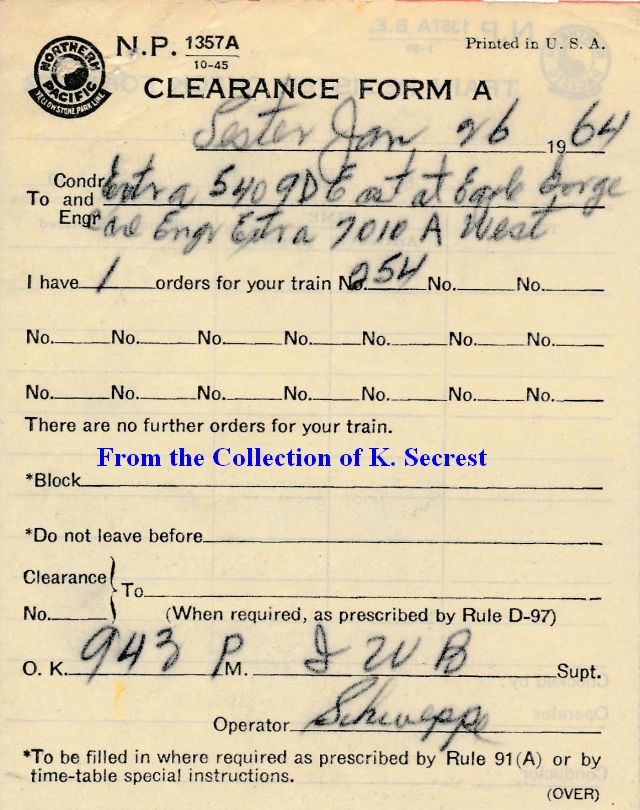 NORTHERN PACIFIC
YELLOWSTONE PARK LINE
N.P. 1357A
10-45
Printed in U. S. A.
CLEARANCE FORM A
Lester Jan 26 1964
Condr
To and
Engr
Extra 5409D East at Eagle Gorge
and Engr Extra 7010 A West
I have 1 orders for your train No. 254 No. No.
No. No. No. No. No. No. No.
No. No. No. No. No. No. No.
There are no further orders for your train.
From the Collection of K. Secrest
*Block
*Do not leave before
Clearance
No.
To
(When required, as prescribed by Rule D-97)
O. K. 943 P M. J W B Supt.
Operator Schweppe
*To be filled in where required as prescribed by Rule 91(A) or by
time-table special instructions.
(OVER)